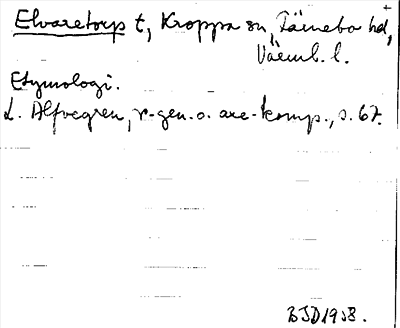 Elvaretorp t, Kroppa sn, Färnebo hd,
Värml. l.
Etymologi.
L. Alfvegren, r-gen. o. are-komp., s. 67.
BJD1938.